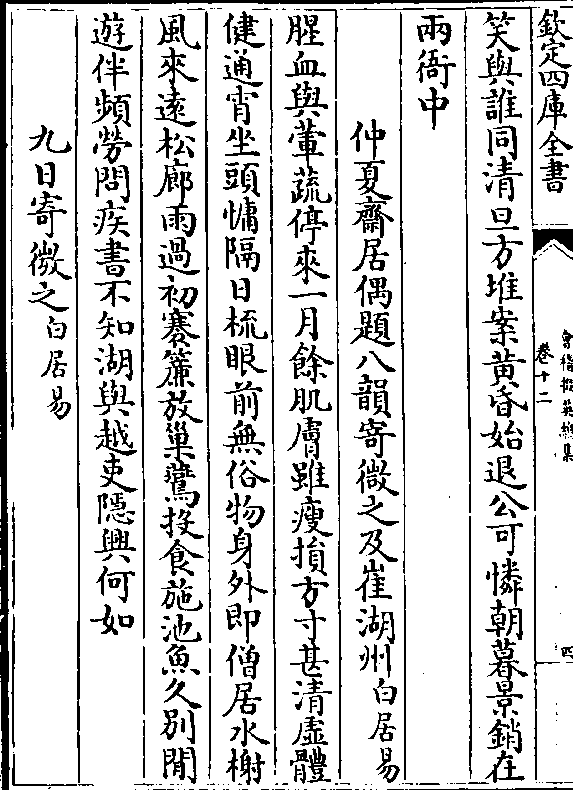 欽定四庫全書
會稽掇英總集
卷十二
四
笑與誰同清旦方堆案黄昏始退公可憐朝暮景銷在
兩衙中
仲夏齋居偶題八韻寄微之及崔湖州白居易
腥血與葷蔬停來一月餘肌膚雖瘦損方寸甚清虚體
健通宵坐頭慵隔日梳眼前無俗物身外即僧居水榭
風來遠松廊雨過初褰簾放巢鷰投食施池魚久别閒
遊伴頻勞問疾書不知湖與越吏隱興何如
九日寄微之白居易